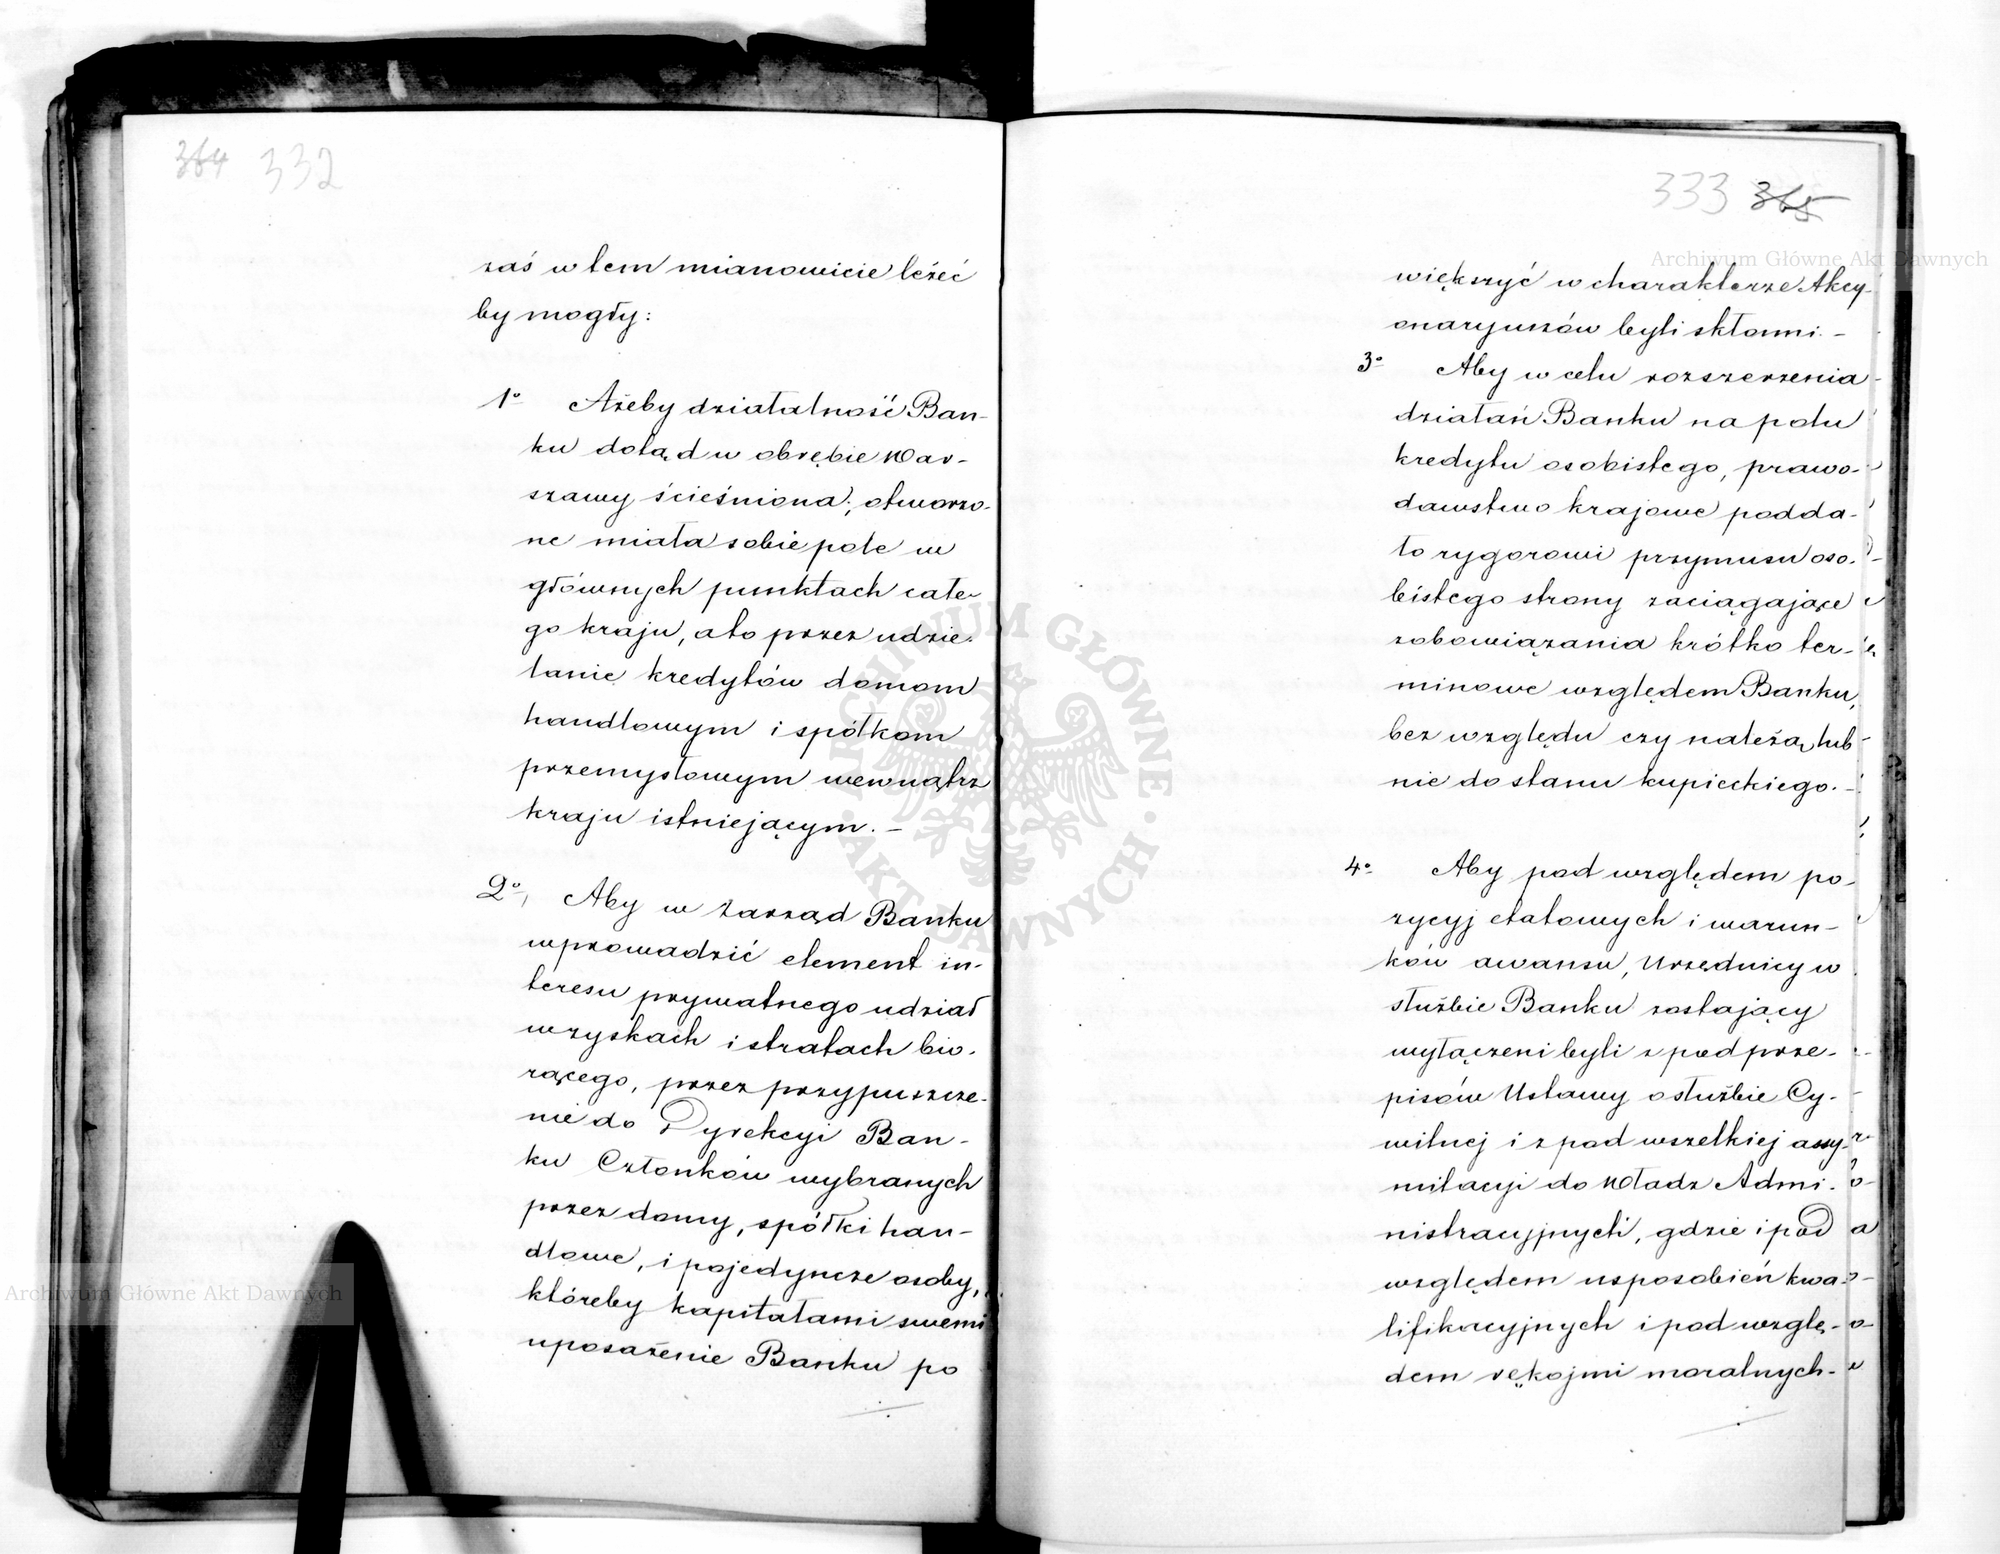 364 332
zaś w tem mianowicie leżeć
by mogły:
1o Ażeby działalność Ban-
ku dotąd w obrębie War-
szawy ścieśniona, otworzo-
ne miała sobie pole w
głównych punktach całe-
go kraju, a to przez udzie-
lanie kredytów domom
handlowym i spółkom
przemysłowym wewnątrz
kraju istniejącym. –
2o, Aby w Zarząd Banku
wprowadzić element in-
teresu prywatnego udział
w zyskach i stratach bio-
rącego, przez przypuszcze-
nie do Dyrekcyi Ban-
ku Członków wybranych
przez domy, spółki han-
dlowe, i pojedyncze osoby,
któreby kapitałami swemi
uposażenie Banku po
333 365
większyć w charakterze Akcy-
onaryuszów byli skłonni. –
3o Aby w celu rozszerzenia
działań Banku na polu
kredytu osobistego, prawo-
dawstwo krajowe podda-
ło rygorowi przymusu oso-
bistego strony zaciągające
zobowiązania krótko ter-
minowe względem Banku,
bez względu czy należą lub
nie do stanu kupieckiego. –
4o Aby pod względem po-
zycyj etatowych i warun-
ków awansu, Urzędnicy w
służbie Banku zostający
wyłączeni byli z pod prze-
pisów Ustawy o służbie Cy-
wilnej i z pod wszelkiej assy-
milacyi do Władz Admi-
nistracyjnych, gdzie i pod
względem usposobień kwa-
lifikacyjnych i pod wzglę-
dem rękojmi moralnych-
Archiwum Główne Akt Dawnych
Archiwum Główne Akt Dawnych
ARCHIWUM GŁÓWNE · AKT DAWNYCH ·